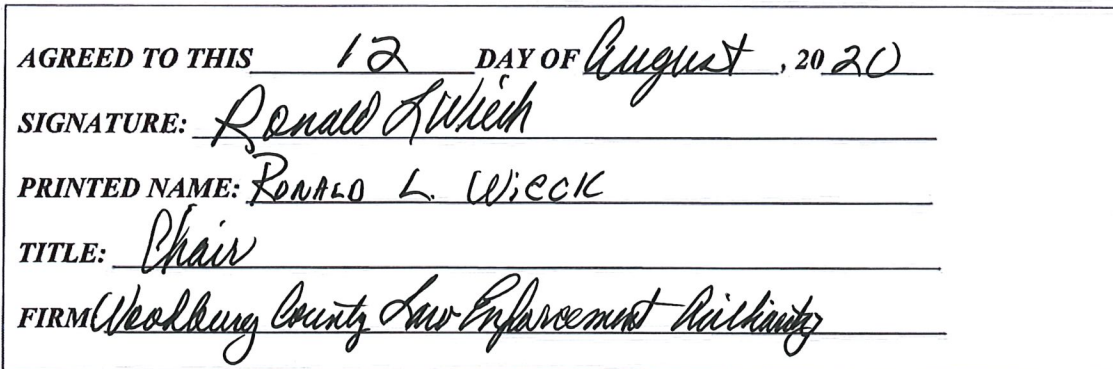 AGREED TO THIS 12 DAY OF August, 20 20
SIGNATURE: Ronald L Wieck
PRINTED NAME: RONALD L. WIECK
TITLE: Chair
FIRM Woodbury County Law Enforcement Authority